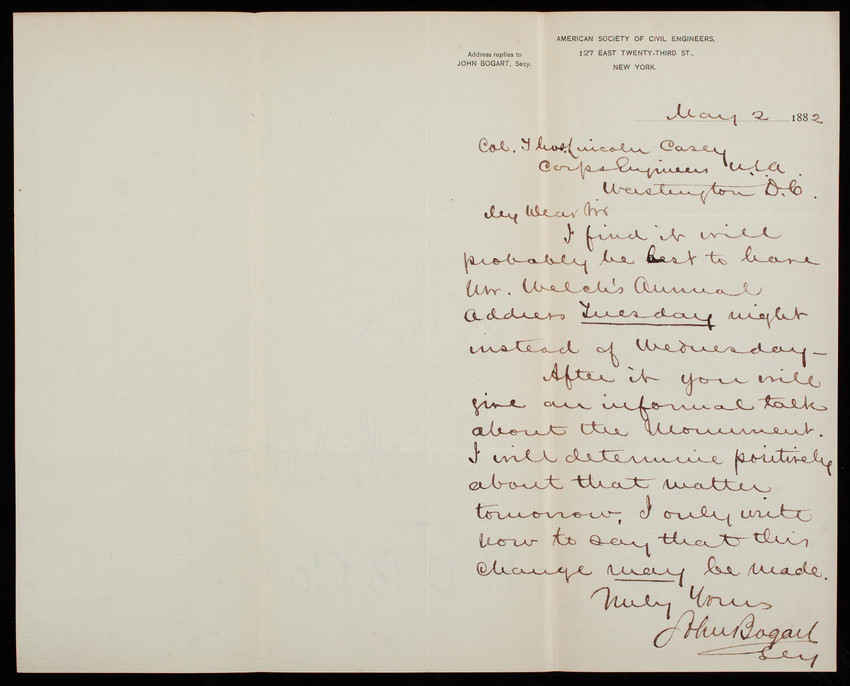 AMERICAN SOCIETY OF CIVIL ENGINEERS,
127 EAST TWENTY-THIRD ST.,
NEW YORK.
Address replies to
JOHN BOGART, Secy.
May 2 1882
Col. Thos. Lincoln Casey
Corps Engineers U.S.A.
Washington D.C.
My Dear Sir
I find it will
probably be best to have
Mr. Welch's Annual
Address Tuesday night
instead of Wednesday—
After it you will
give an informal talk
about the Monument.
I will determine positively
about that matter
tomorrow, I only write
now to say that this
change may be made.
Truly Yours
John Bogart
Secy